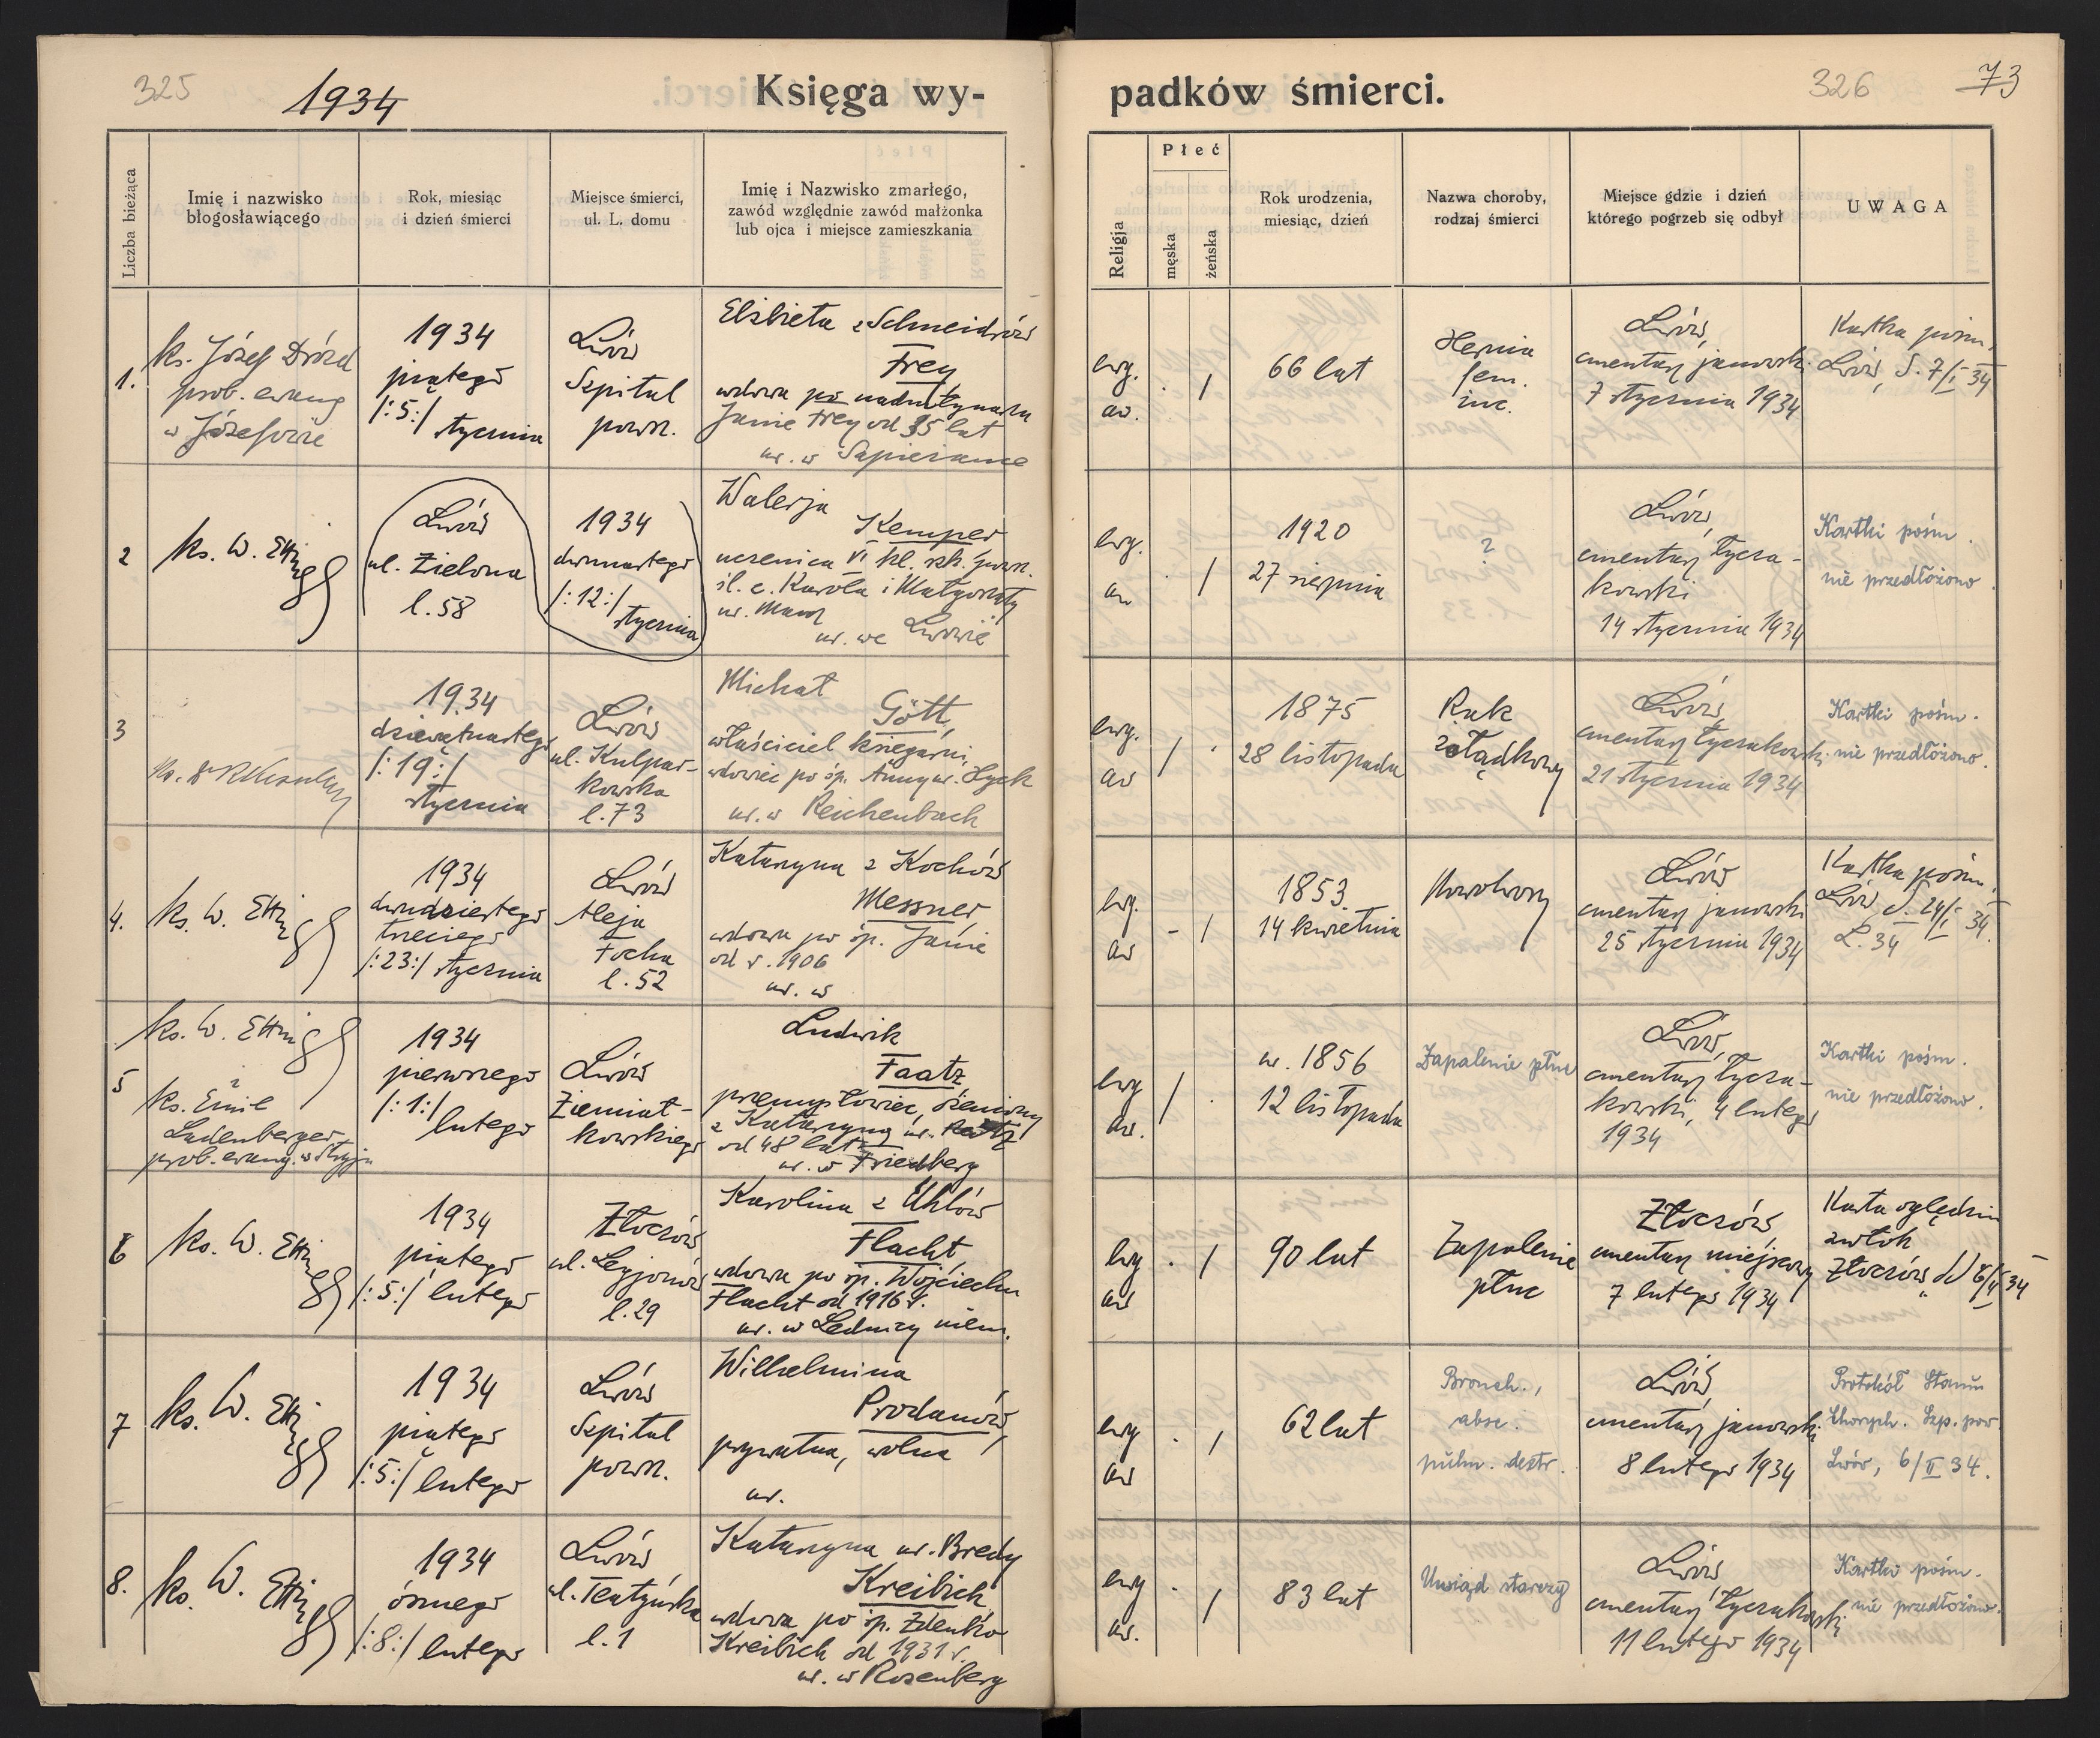 325
1934
Księga wy-
padków śmierci.
326
73
Liczba bieżąca
Imię i nazwisko
błogosławiącego
Rok, miesiąc
i dzień śmierci
Miejsce śmierci,
ul. L. domu
Imię i Nazwisko zmarłego,
zawód względnie zawód małżonka
lub ojca i miejsce zamieszkania
Religja
Płeć
męska
żeńska
Rok urodzenia,
miesiąc, dzień
Nazwa choroby,
rodzaj śmierci
Miejsce gdzie i dzień
którego pogrzeb się odbył
UWAGA
1.
ks. Józef Drózd
prob. ewang
w Józefowie
1934
piątego
/:5:/
stycznia
Lwów
Szpital
powsz.
Elżbieta z Schneidrów
Frey
wdowa po
Janie Frey od 35 lat
ur. w Sapieżance
ewg.
au.
. /
66 lat
Hernia
fem.
inc.
Lwów,
cmentarz janowski
7 stycznia 1934
Kartka pośm.
Lwów, d. 7/I 34
2
ks. W. Etting
Lwów
ul. Zielona
l. 58
1934
dwunastego
/:12:/
stycznia
Walerja
Kemper
uczenica VI kl. szk. powsz.
śl. c. Karola i Małgorzaty
ur.
ur. we Lwowie
ewg.
au
. /
1920
27 sierpnia
?
Lwów,
cmentarz łycza-
kowski
14 stycznia 1934
Kartki pośm.
nie przedłożono.
3
1934
dziewiętnastego
/:19:/
stycznia
Lwów
ul. Kulpar-
kowska
l. 73
Michał
Gött,
właściciel księgarni,
wdowiec po śp. Anny ur. Hyck
ur. w Reichenbach
ewg.
au
/ .
1875
28 listopada
Rak
żołądkowy
Lwów,
cmentarz łyczakowski
21 stycznia 1934
Kartki pośm.
nie przedłożono.
4.
ks. W. Etting
1934
dwudziestego
trzeciego
/:23:/ stycznia
Lwów
Aleja
Focha
l. 52
Katarzyna z Kochów
Messner,
wdowa po śp. Janie
od r. 1906
ur. w
ewg.
au
- /
1853.
14 kwietnia
Nowotwory
Lwów
cmentarz janowski
25 stycznia 1934
Kartka pośm.
Lwów, d. 24/I 34.
L. 34
ks. W. Etting
5
ks. Emil
Ladenberger
prob. ewang. w Stryju
1934
pierwszego
/:1:/
lutego
Lwów
Ziemiał-
kowskiego
Ludwik
Faatz
przemysłowiec, żeniony
z Katarzyną ur.
od 48 lat
ur. w Friedberg
ewg
au.
/ .
ur. 1856
12 listopada
Zapalenie płuc
Lwów,
cmentarz łycza-
kowski, 4 lutego
1934
Kartki pośm.
nie przedłożono.
6
ks. W. Etting
1934
piątego
/:5:/ lutego
Złoczów
ul. Legjonów
l. 29
Karolina z Uhlów
Flacht
wdowa po śp. Wojciechu
Flacht od 1916 r.
ur. w Lednicy niem.
ewg
au
. /
90 lat
Zapalenie
płuc
Złoczów
cmentarz miejscowy
7 lutego 1934
Karta oględzin
zwłok
Złoczów, d 6/II 34
7
ks. W. Etting
1934
piątego
/:5:/ lutego
Lwów
Szpital
powsz.
Wilhelmina
Prodanów,
prywatna, wolna
ur.
ewg
au
. /
62 lat
Bronch.,
absc.
pulm. destr.
Lwów,
cmentarz janowski
8 lutego 1934
Protokół Stanu
chorych. Szp. pow
Lwów, 6/II 34.
8.
ks. W. Etting
1934
ósmego
/:8:/ lutego
Lwów
ul. Teatyńska
l. 1
Katarzyna ur. Bredy
Kreibich
wdowa po śp. Zdenko
Kreibich od 1931 r.
ur. w Rosenberg
ewg
au.
. /
83 lat
Uwiąd starczy
Lwów,
cmentarz łyczakowski
11 lutego 1934
Kartki pośm.
nie przedłożono.